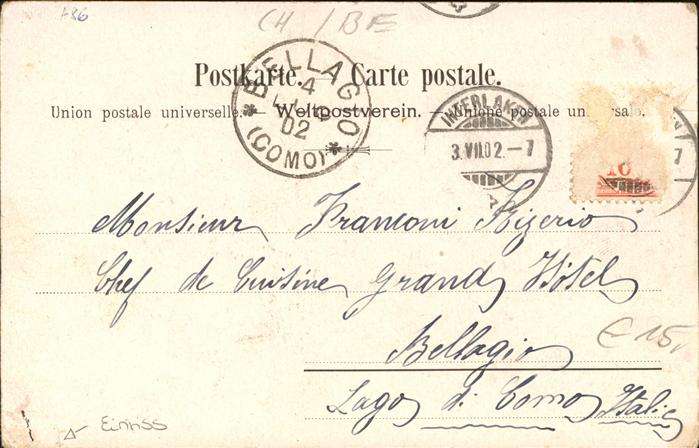 486
CH / BE
Postkarte. — Carte postale.
Union postale universelle. — Weltpostverein. — Unione postale un sale.
BELLAGIO
4
LUG
02
(COMO)
INTERLAKEN
3.VII.02.-7
10
7
Monsieur Franconi Rizerio
Chef de Cuisine Grand Hôtel
Bellagio
€ 15,
Lago di Como Italie
Einriss